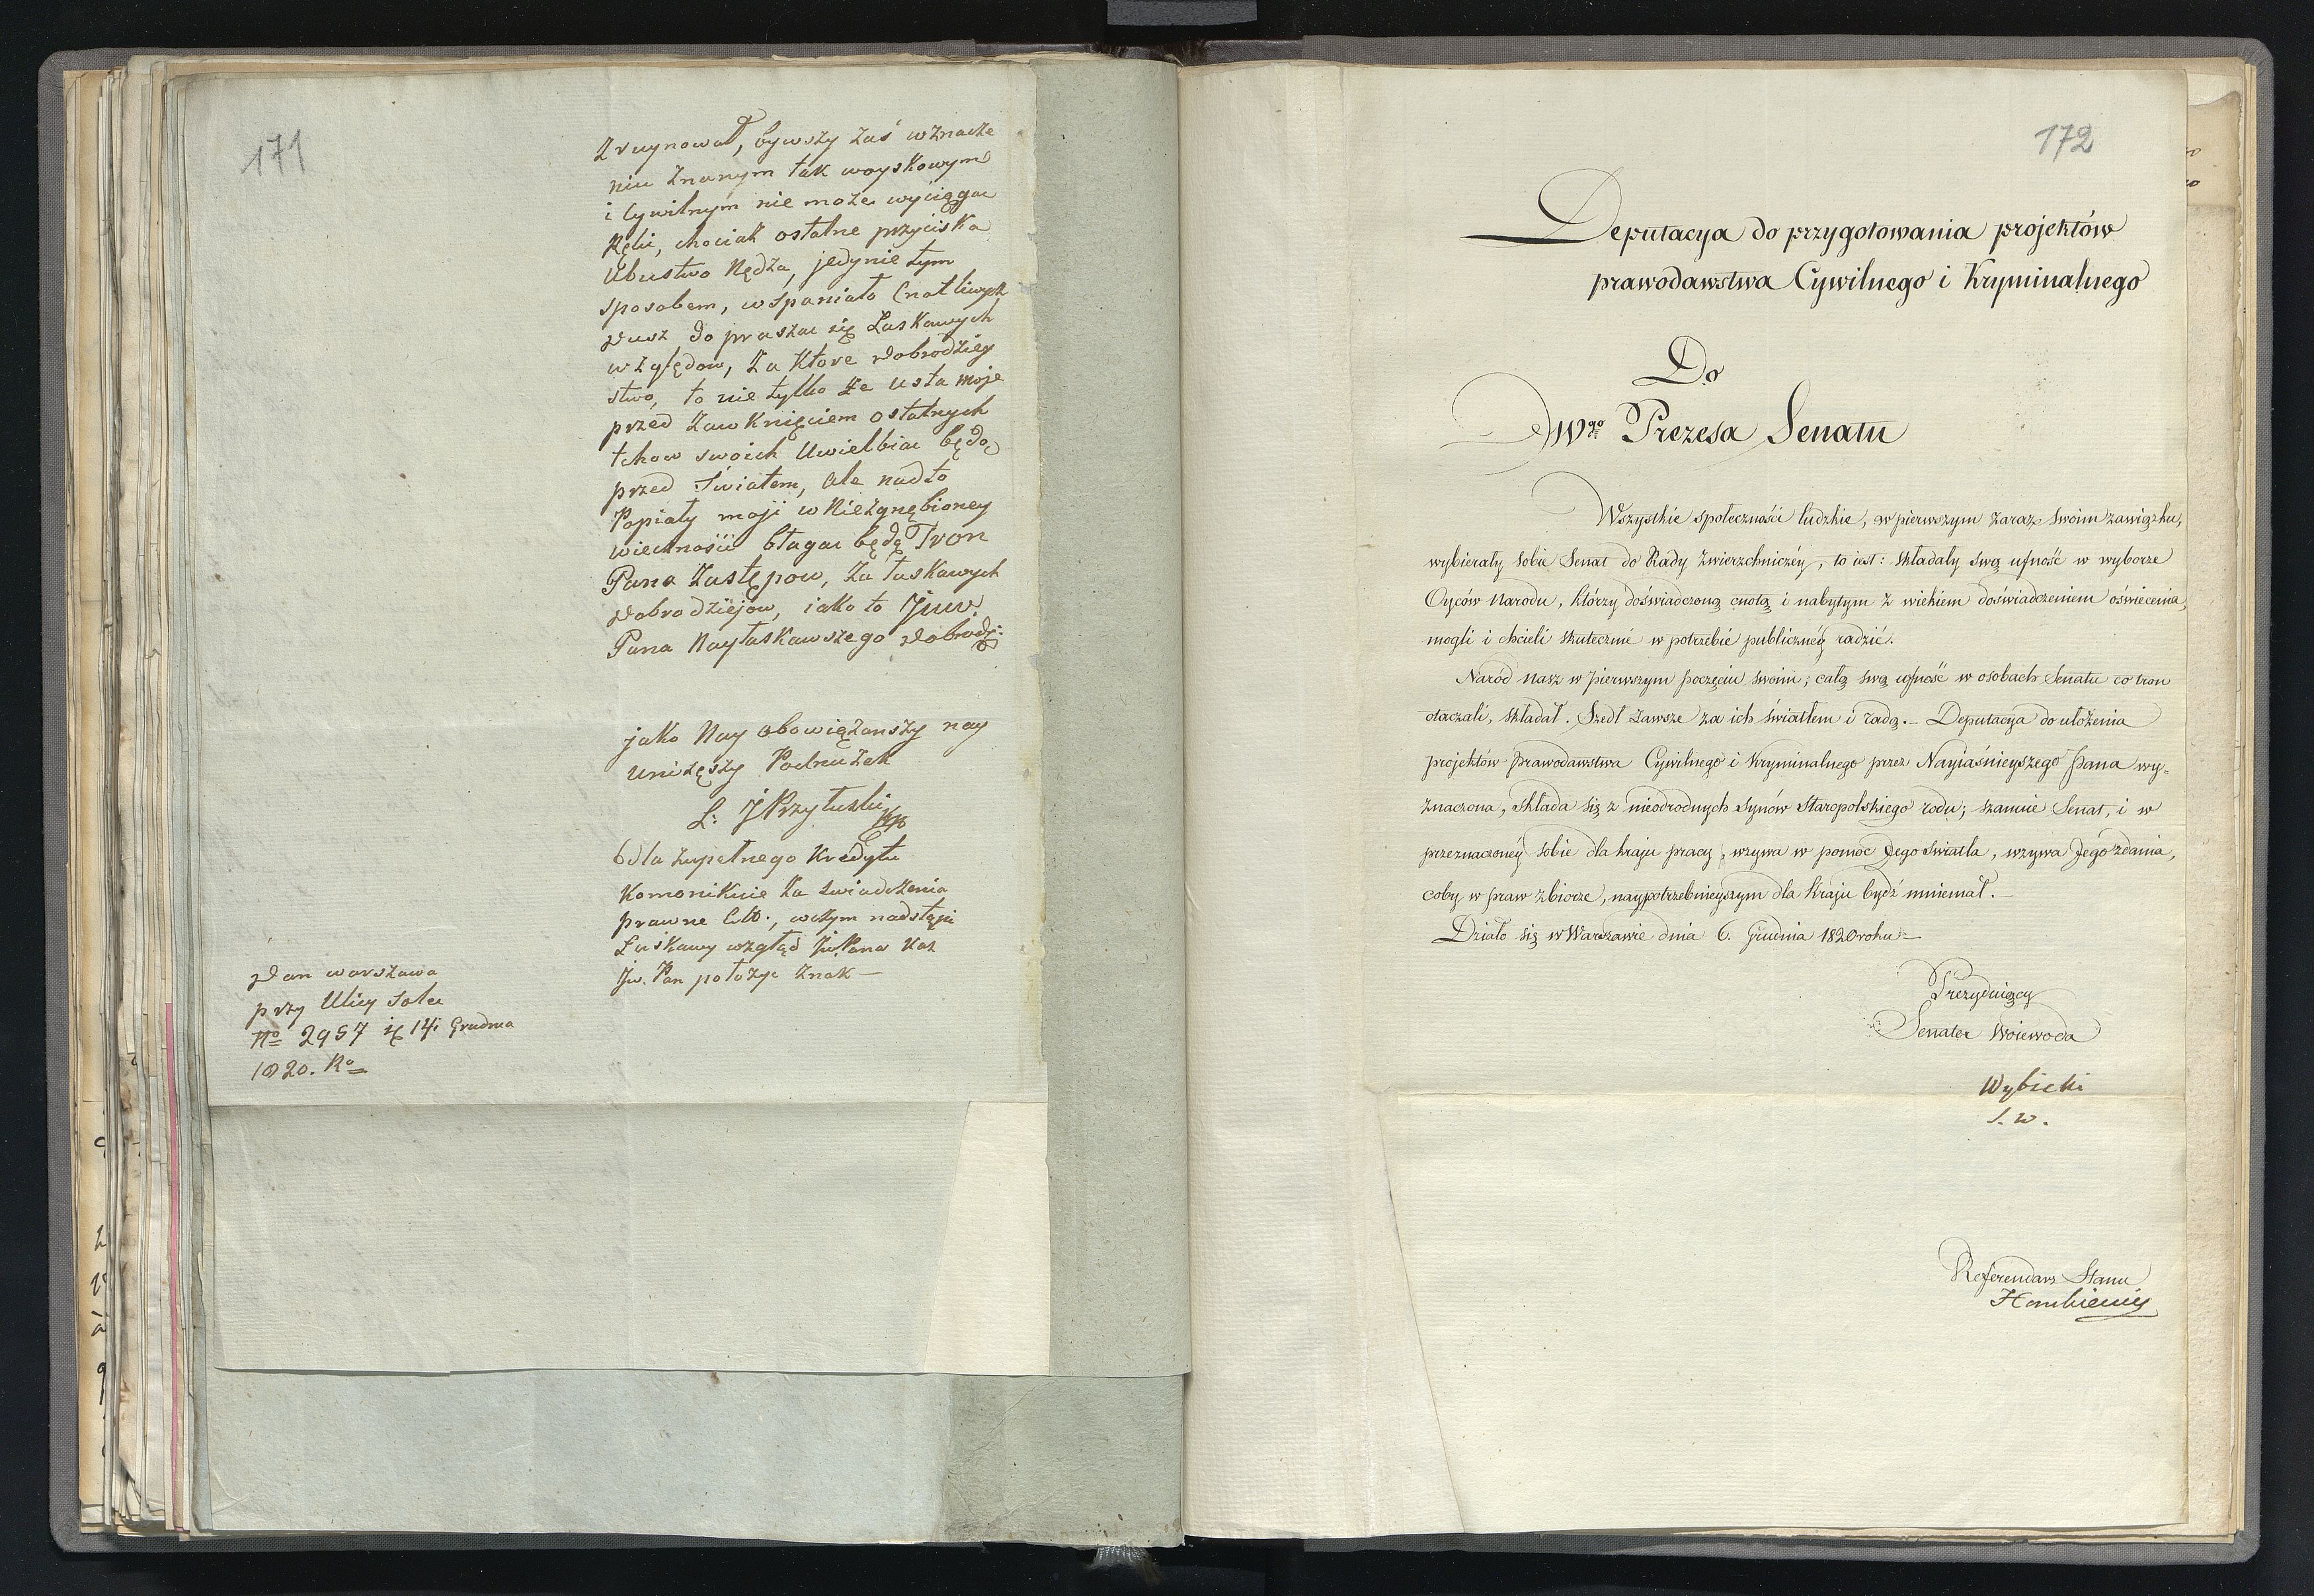 171
Zruynował, bywszy zaś w znacze
niu znanym tak woyskowym
i Cywilnym nie może wyciągać
Ręki, chociaż ostatnie przyciska
Ubustwo Nędza, jedynie tym
sposobem, wspaniało Cnotliwych
dusz do praszać się Łaskawych
względow, Za Ktore dobrodziey
stwo, to nie tylko że usta moje
przed Zawknięciem ostatnych
tchow swoich Uwielbiać będą
przed Światem, ale nadto
Popiały moji w Niezgnębioney
wieczności błagać będą Tron
Pana Zastępow, Za łaskawych
dobrodziejów, iako to Jww.
Pana Nayłaskawszego dobrodz:
jako Nay obowiązanszy nay
uniżęszy Podnużek
L: J Przyłuski
dla zupełnego Kredytu
Komonikuie Za świadczenia
prawne
Łaskawy wzgląd Jw. Pana
Jw. Pan położyć Znak —
Dan warszawa
przy Ulicy Solec
No 2957 14 Grudnia
1820. Ro
172
Deputacya do przygotowania projektów
prawodawstwa Cywilnego i Kryminalnego
Do
JWgo Prezesa Senatu
Wszystkie społeczności ludzkie, w pierwszym zaraz swoim zawiązku,
wybierały sobie Senat do Rady Zwierzchniczéy, to iest: składały swą ufność w wyborze
Oyców Narodu, którzy doświadczoną cnotą i nabytym z wiekiem doświadczeniem oświecenia,
mogli i chcieli skutecznie w potrzebie publicznéy radzić.
Naród nasz w pierwszym poczęciu swoim, całą swą ufność w osobach Senatu co tron
otaczali, składał. Szedł zawsze za ich światłem i radą. — Deputacya do ułożenia
projektów prawodawstwa Cywilnego i Kryminalnego przez Nayiaśnieyszego Pana wy-
znaczona, składa się z nieodrodnych synów Staropolskiego rodu; szanuie Senat, i w
przeznaczonéy sobie dla kraju pracy, wzywa w pomoc Jego światła, wzywa Jego zdania,
coby w praw zbiorze, naypotrzebnieyszym dla Kraju bydź mniemał. —
Działo się w Warszawie dnia 6. Grudnia 1820 roku —
Prezyduiący
Senator Woiewoda
Wybicki
S. W.
Referendarz Stanu
Hankiewicz